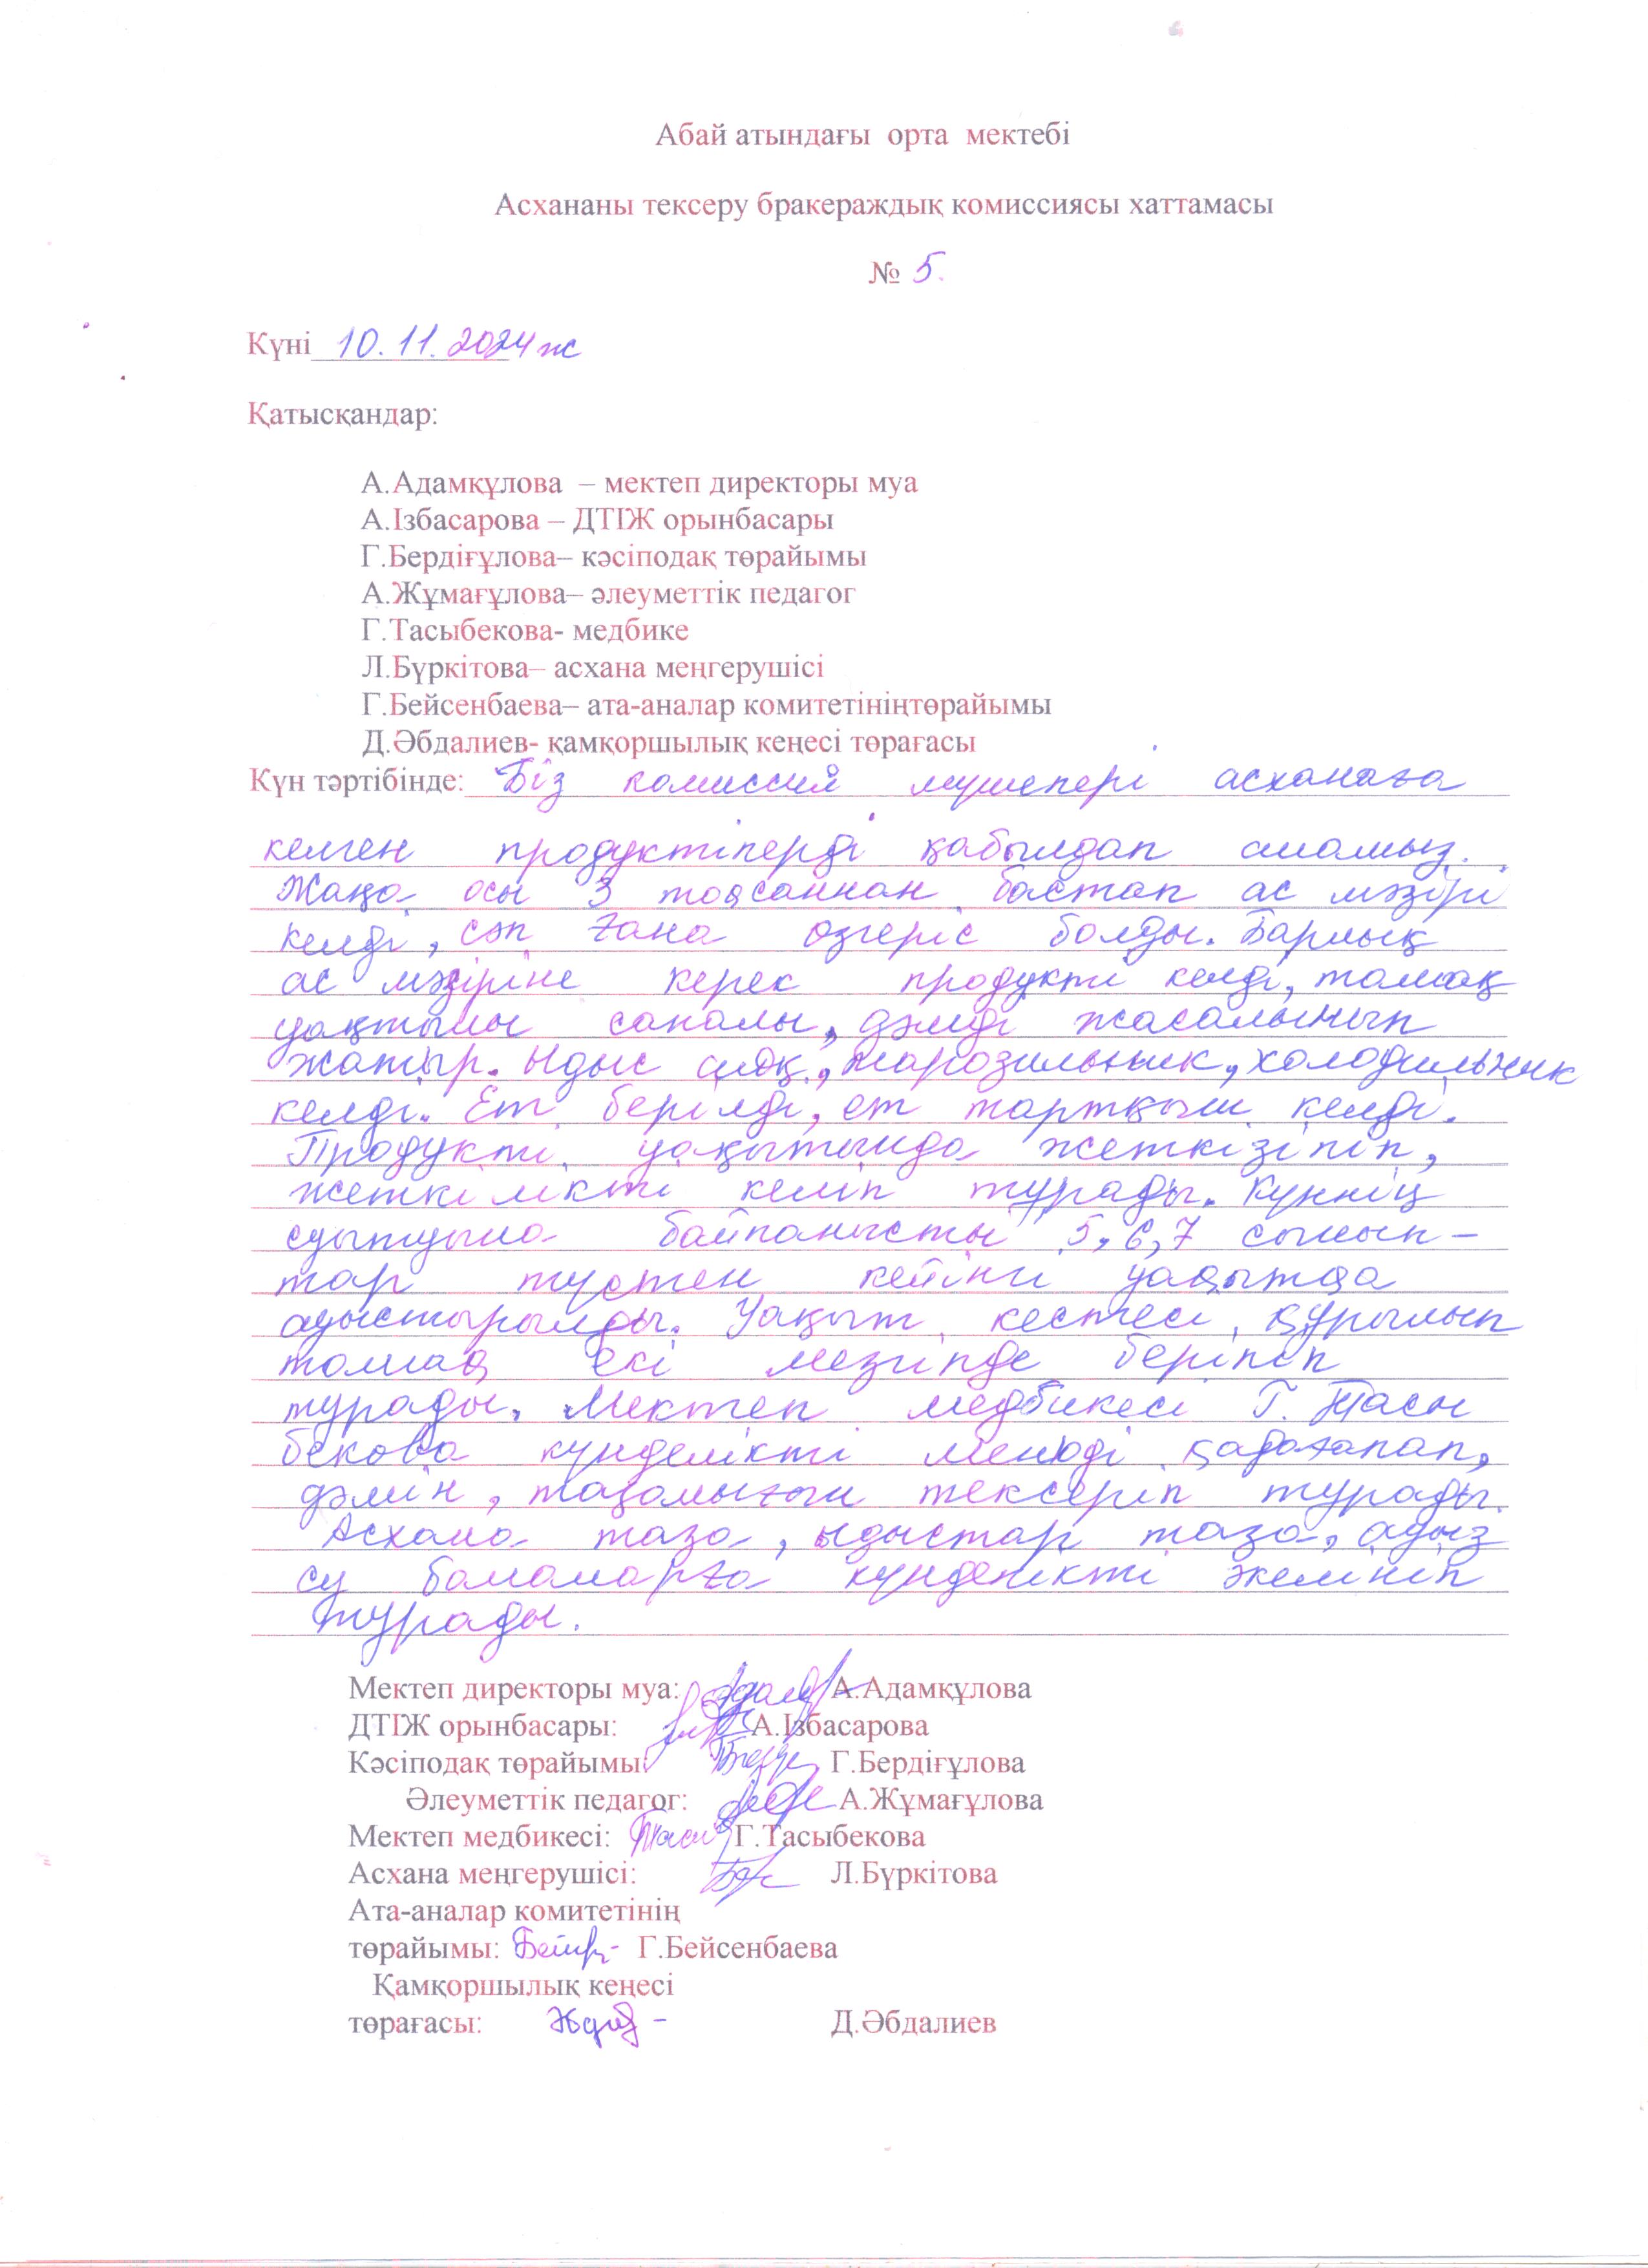 Абай атындағы орта мектебі
Асхананы тексеру бракераждық комиссиясы хаттамасы
№ 5.
Күні 10.11.2024ж
Қатысқандар:
А.Адамқұлова – мектеп директоры муа
А.Ізбасарова – ДТІЖ орынбасары
Г.Бердіғұлова– кәсіподақ төрайымы
А.Жұмағұлова– әлеуметтік педагог
Г.Тасыбекова- медбике
Л.Бүркітова– асхана меңгерушісі
Г.Бейсенбаева– ата-аналар комитетініңтөрайымы
Д.Әбдалиев- қамқоршылық кеңесі төрағасы
Күн тәртібінде: Біз комиссия мүшелері асханаға
келген продуктілерді қабылдап аламыз.
Жаңа осы 3 тоқсаннан бастап ас мәзірі
келді, сәл ғана өзгеріс болды. Барлық
ас мәзіріне керек продукті келді, тамақ
уақтылы сапалы, дәмді жасалынып
жатыр. Ыдыс аяқ, марозильник, холодильник
келді. Ет берілді, ет тартқыш келді.
Продукті уақытында жеткізіліп,
жеткілікті келіп тұрады. Күннің
суытуына байланысты 5, 6, 7 сынып-
тар түстен кейінгі уақытқа
ауыстырылды. Уақыт кестесі құрылып
тамақ екі мезгілде беріліп
тұрады. Мектеп медбикесі Г. Тасы
бекова күнделікті менюді қадағалап,
дәмін, тағамығын тексеріп тұрады.
Асхана таза, ыдыстар таза, ауыз
су балаларға күнделікті әкелініп
тұрады.
Мектеп директоры муа: А.Адамқұлова
ДТІЖ орынбасары: А.Ізбасарова
Кәсіподақ төрайымы: Г.Бердіғұлова
Әлеуметтік педагог: А.Жұмағұлова
Мектеп медбикесі: Г.Тасыбекова
Асхана меңгерушісі: Л.Бүркітова
Ата-аналар комитетінің
төрайымы: Г.Бейсенбаева
Қамқоршылық кеңесі
төрағасы: Д.Әбдалиев